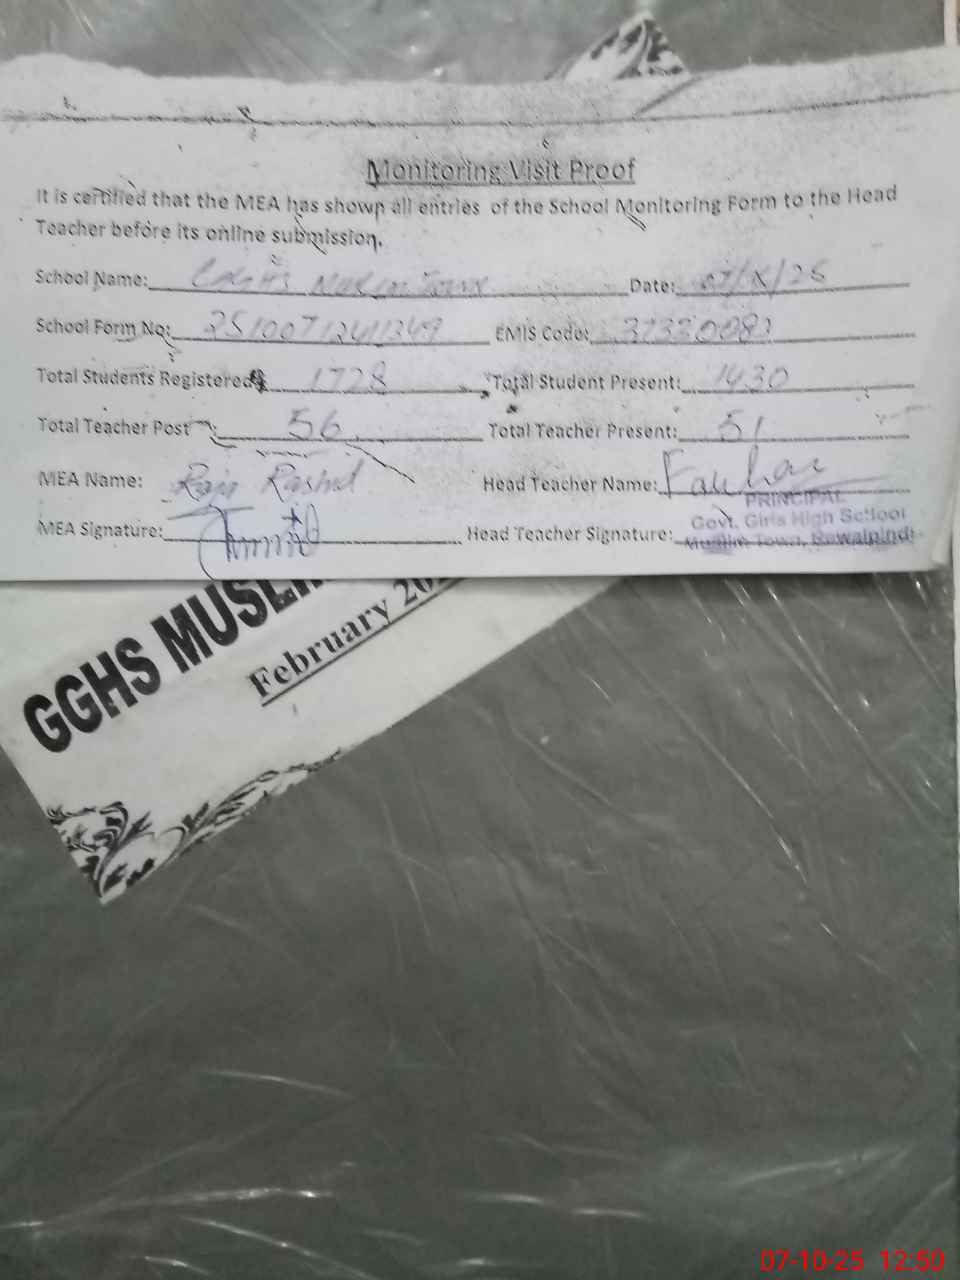 Monitoring Visit Proof
It is certified that the MEA has shown all entries of the School Monitoring Form to the Head
Teacher before its online submission.
School Name: GGHS Muslim Town Date: 07/X/25
School Form No: EMIS Code:
Total Students Registered: 1728 Total Student Present: 1430
Total Teacher Post: 56 Total Teacher Present: 51
MEA Name: Raja Rashid Head Teacher Name:
PRINCIPAL
Govt. Girls High School
MEA Signature: Head Teacher Signature: Muslim Town, Rawalpindi
GGHS
February
07-10-25 12:50